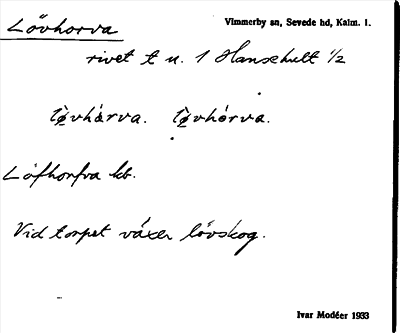 Lövhorva
Vimmerby sn, Sevede hd, Kalm. l.
rivet t u. 1 Hanschult 1/2
Löfhorfva kb.
Vid torpet växer lövskog.
Ivar Modéer 1933